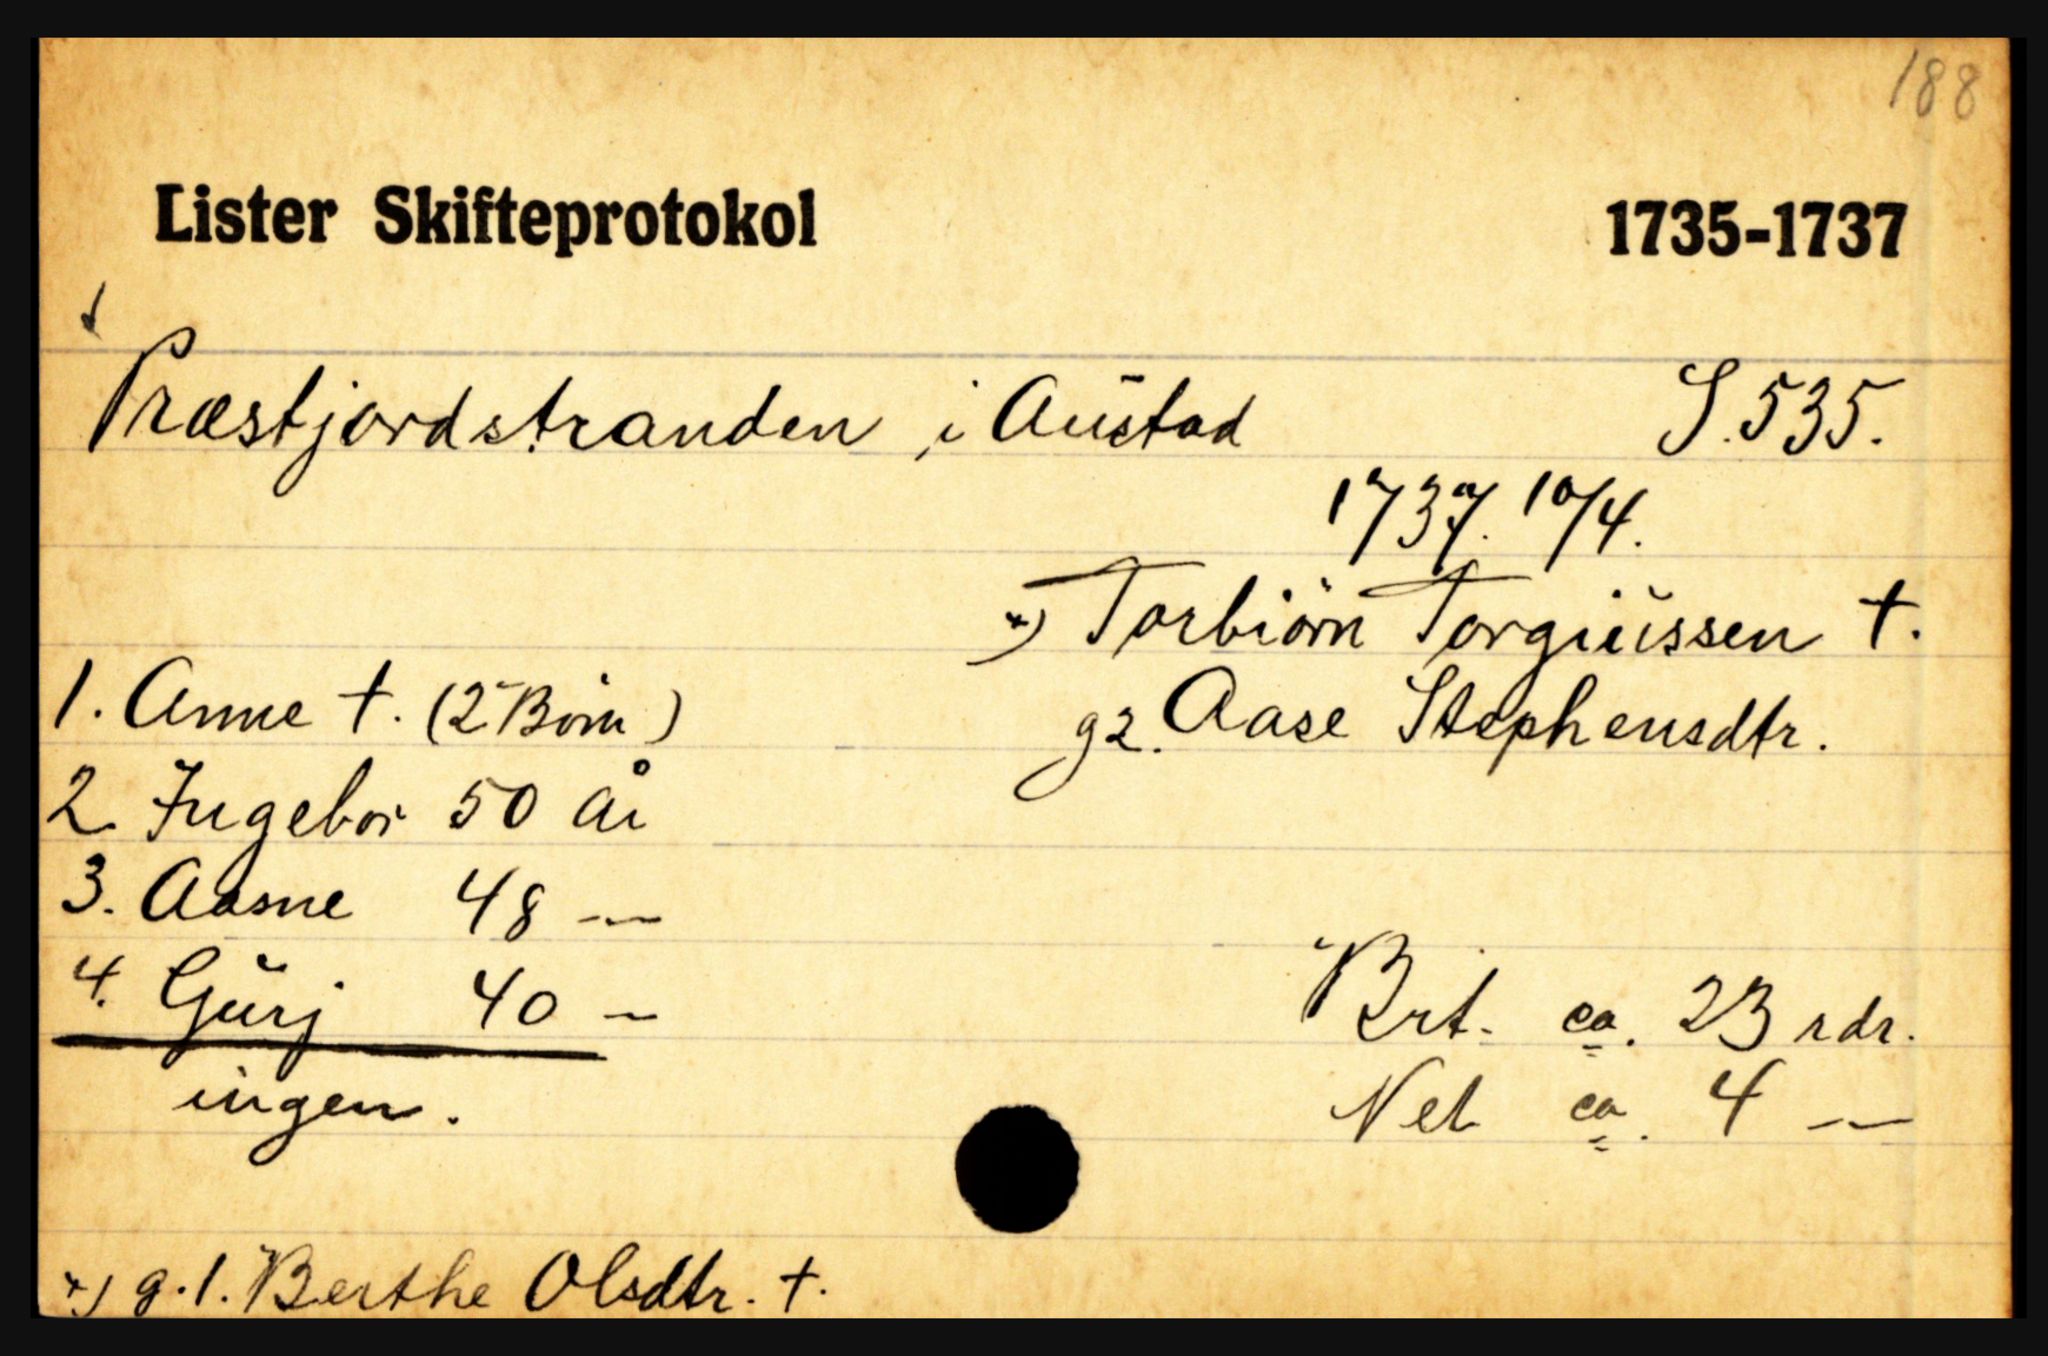 188
Lister Skifteprotokol 1735-1737
Præstjordstranden i Austad S. 535.
1737. 10/4.
*) Torbiörn Torgiussen †.
1. Anne †. (2 Börn) g2. Aase Stephensdtr.
2. Ingebor 50 år
3. Aasne 48 —
4. Gurj 40 — Brt. ca. 23 rdr.
ingen. Net ca. 4 —
*) g.1. Berthe Olsdtr. †.